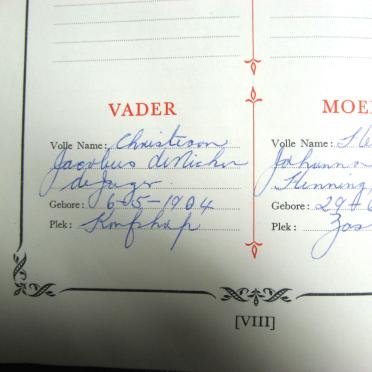 VADER
Volle Name: Christiaan
Jacobus
de Jager.
Gebore: 6-5-1904
Plek:
MOE
Volle Name:
Johanna
Henning,
Gebore: 29-6
Plek: Zas
[VIII]